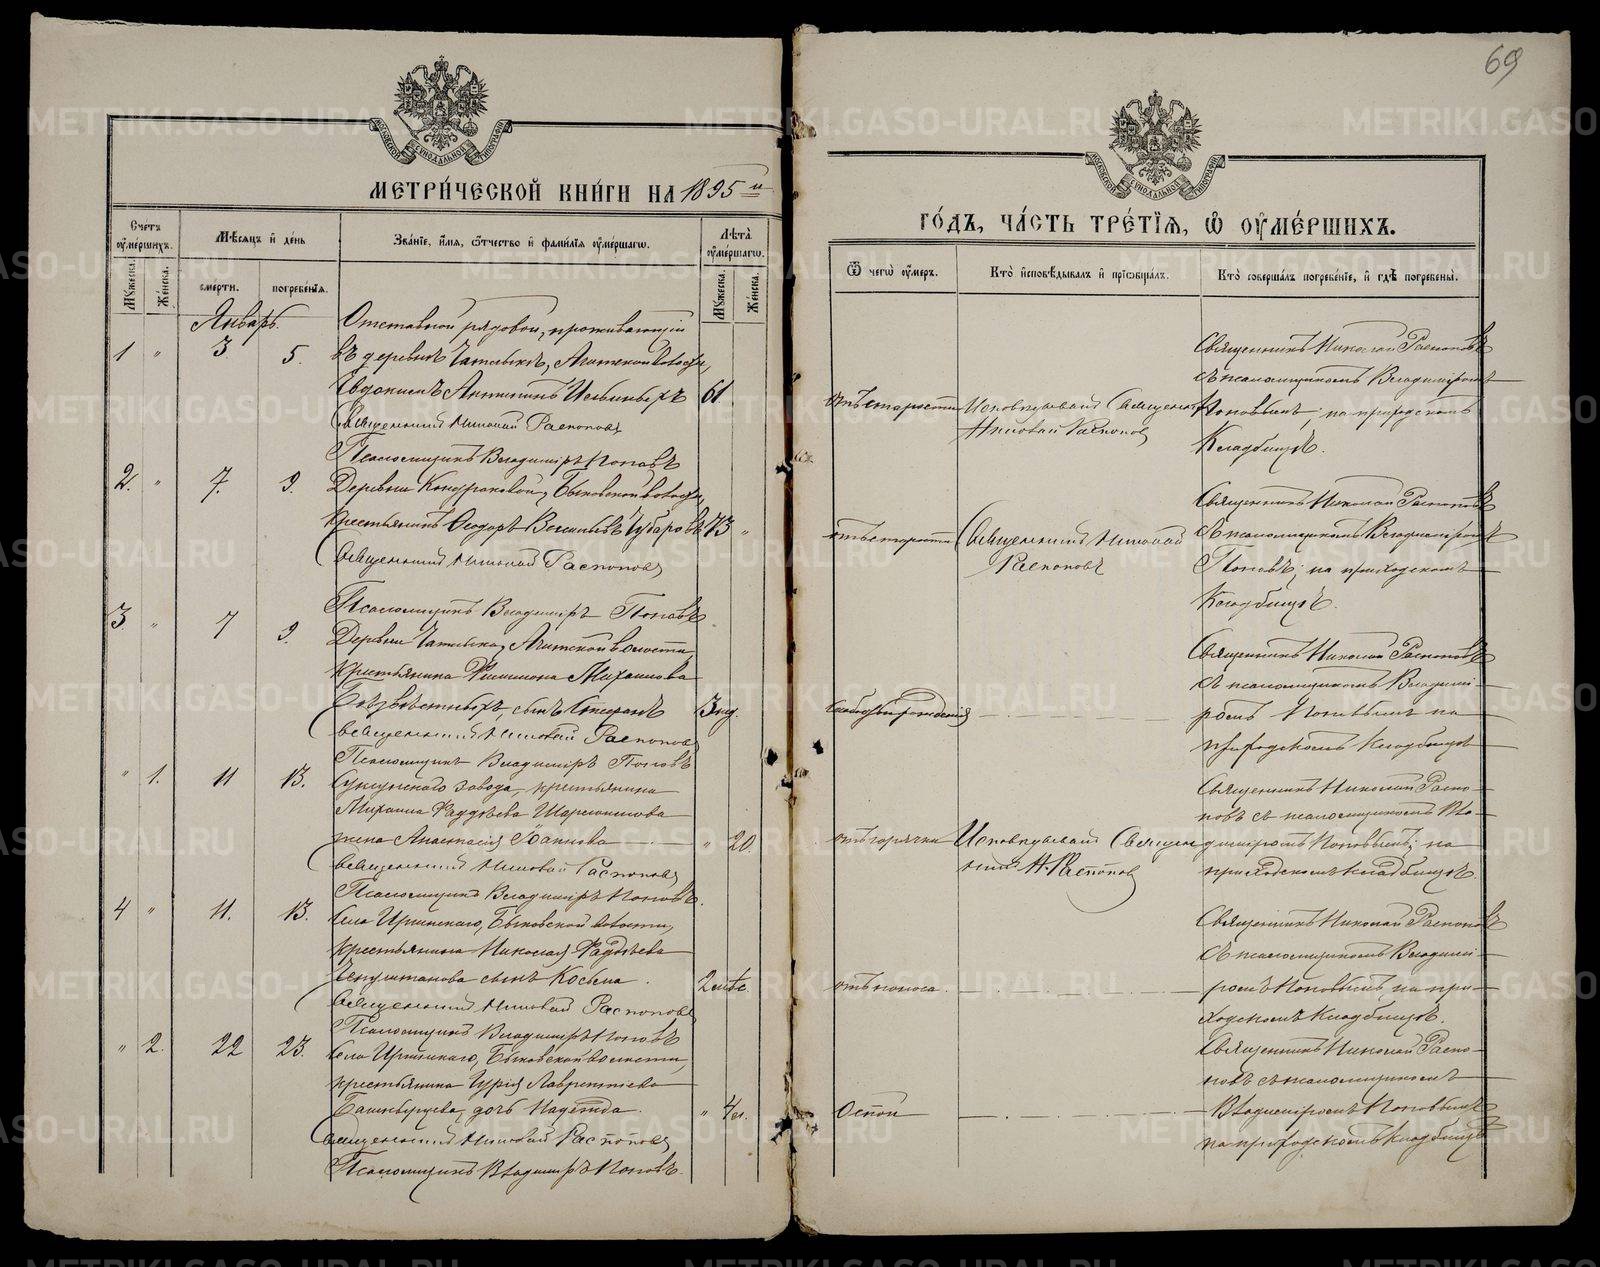 69
МЕТРИ́ЧЕСКОЙ КНИ́ГИ НА 1895 й
ГО́ДЪ, ЧА́СТЬ ТРЕ́ТЇѦ, Ѽ ОУ҆МЕ́РШИХЪ.
Счетъ оу҆ме́ршихъ.
Мѣ́сѧцъ и҆ де́нь
Зва́нїе, и҆́мѧ, ѻ҆́тчество и҆ фами́лїѧ оу҆ме́ршагѡ.
Лѣ́та оу҆ме́ршагѡ.
Мꙋ́жеска.
Же́нска.
сме́рти.
погребе́нїѧ.
Мꙋ́жеска.
Же́нска.
Ѿ чегѡ̀ оу҆́меръ.
Кто̀ и҆сповѣ́дывалъ и҆ прїѡбща́лъ.
Кто̀ соверша́лъ погребе́нїе, и҆ гдѣ̀ погребены̀.
Январь.
Отставной рядовой, проживающій
1 " 3 5.
въ деревнѣ
Евдокимъ 61
Священникъ Николай Распоповъ
Псаломщикъ Владиміръ Поповъ
отъ старости
Исповѣдывалъ Священ.
Николай Распопов
Священникъ Николай Распоповъ
съ псаломщикомъ Владиміромъ
Поповымъ, на приходскомъ
Кладбищѣ.
2. " 7. 9.
Деревни Быковской волости,
крестьянинъ Ѳеодоръ Васильевъ Чубаровъ 73 "
Священникъ Николай Распоповъ
Псаломщикъ Владиміръ Поповъ
отъ старости
Священникъ Николай
Распоповъ
Священникъ Николай Распоповъ
съ псаломщикомъ Владиміромъ
Поповъ, на приходскомъ
Кладбищѣ.
3 " 7 9.
Деревни волости,
крестьянина Филимона Михаилова
сынъ Стефанъ 3 нед.
Священникъ Николай Распоповъ
Псаломщикъ Владиміръ Поповъ
Священникъ Николай Распоповъ
съ псаломщикомъ Владимі-
ромъ Поповымъ на
приходскомъ кладбищѣ
" 1. 11 13.
Суксунскаго завода, крестьянина
Михаила Фаддѣева
жена Анастасія Іоаннова " 20.
Священникъ Николай Распоповъ
Псаломщикъ Владиміръ Поповъ.
отъ горячки
Исповѣдывалъ Священ
никъ Н. Распопов
Священникъ Николай Распо-
повъ съ псаломщикомъ Вла-
диміромъ Поповымъ, на
приходскомъ кладбищѣ.
4 " 11. 13.
Села Иргинскаго, Быковской волости,
крестьянина Николая Фаддѣева
сынъ Косьма. 2 мѣс.
Священникъ Николай Распоповъ
Псаломщикъ Владиміръ Поповъ
отъ поноса
Священникъ Николай Распоповъ
съ псаломщикомъ Владимі-
ромъ Поповымъ, на при-
ходскомъ Кладбищѣ.
" 2. 22 23.
Села Иргинскаго, Быковской волости,
крестьянина Гурія Лаврентіева
дочь Надежда. " 4
Священникъ Николай Распоповъ
Псаломщикъ Владиміръ Поповъ.
Оспы
Священникъ Николай Распо-
повъ съ псаломщикомъ
Владиміромъ Поповымъ
на приходскомъ кладбищѣ
METRIKI.GASO-URAL.RU